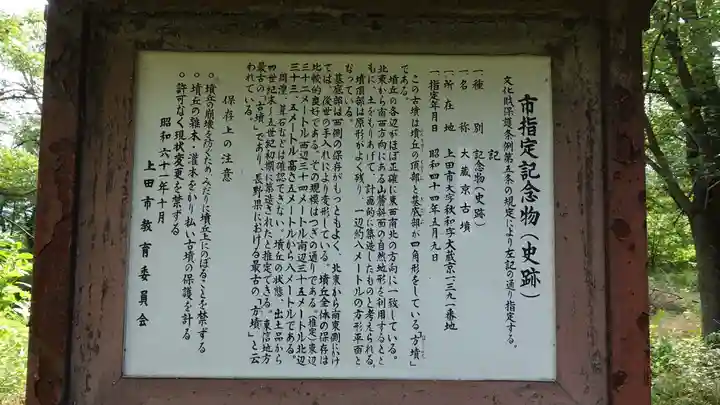 市指定記念物(史跡)
文化財保護条例第五条の規定により左記の通り指定する。
記
一種　別　記念物(史跡)
一名　称　大蔵京古墳
一所在地　上田市大字秋和字大蔵京一三九一番地
一指定年月日　昭和四十四年五月九日
この古墳は墳丘の頂部と基底部が四角形をしている「方墳」
である。
墳丘の各辺がほぼ正確に東西南北の方向に一致している。
北東から南西方向にある山麓斜面の自然地形を利用するとと
もに、土をもりあげて、計画的に築造したものと考えられる。
墳頂部は原形がよく残り、一辺約八メートルの方形平面と
なっている。
基底部は西側の保存がもっともよく、北東から南東側にけ
ては、後世の手入れにより変形している。墳丘全体の保存は
比較的良好である。その規模はつぎの通りである。(推定)東辺
三十二メートル西辺三十四メートル南辺三十五メートル北辺
三十三、五メートル高さ五メートルから八メートルである。
周湟・葺石などは確認できない。墳丘の状態、出土品から
四世紀末〜五世紀初頭に築造されたと推定される。東信地方
最古の「古墳」であり、長野県における最古の「方墳」と云
われている。
保存上の注意
○墳丘の崩壊を防ぐため、みだりに墳丘上にのぼることを禁ずる
○墳丘の雑木・灌木をかり払い、古墳の保護を計る
○許可なく現状変更を禁ずる
昭和六十一年十月
上田市教育委員会